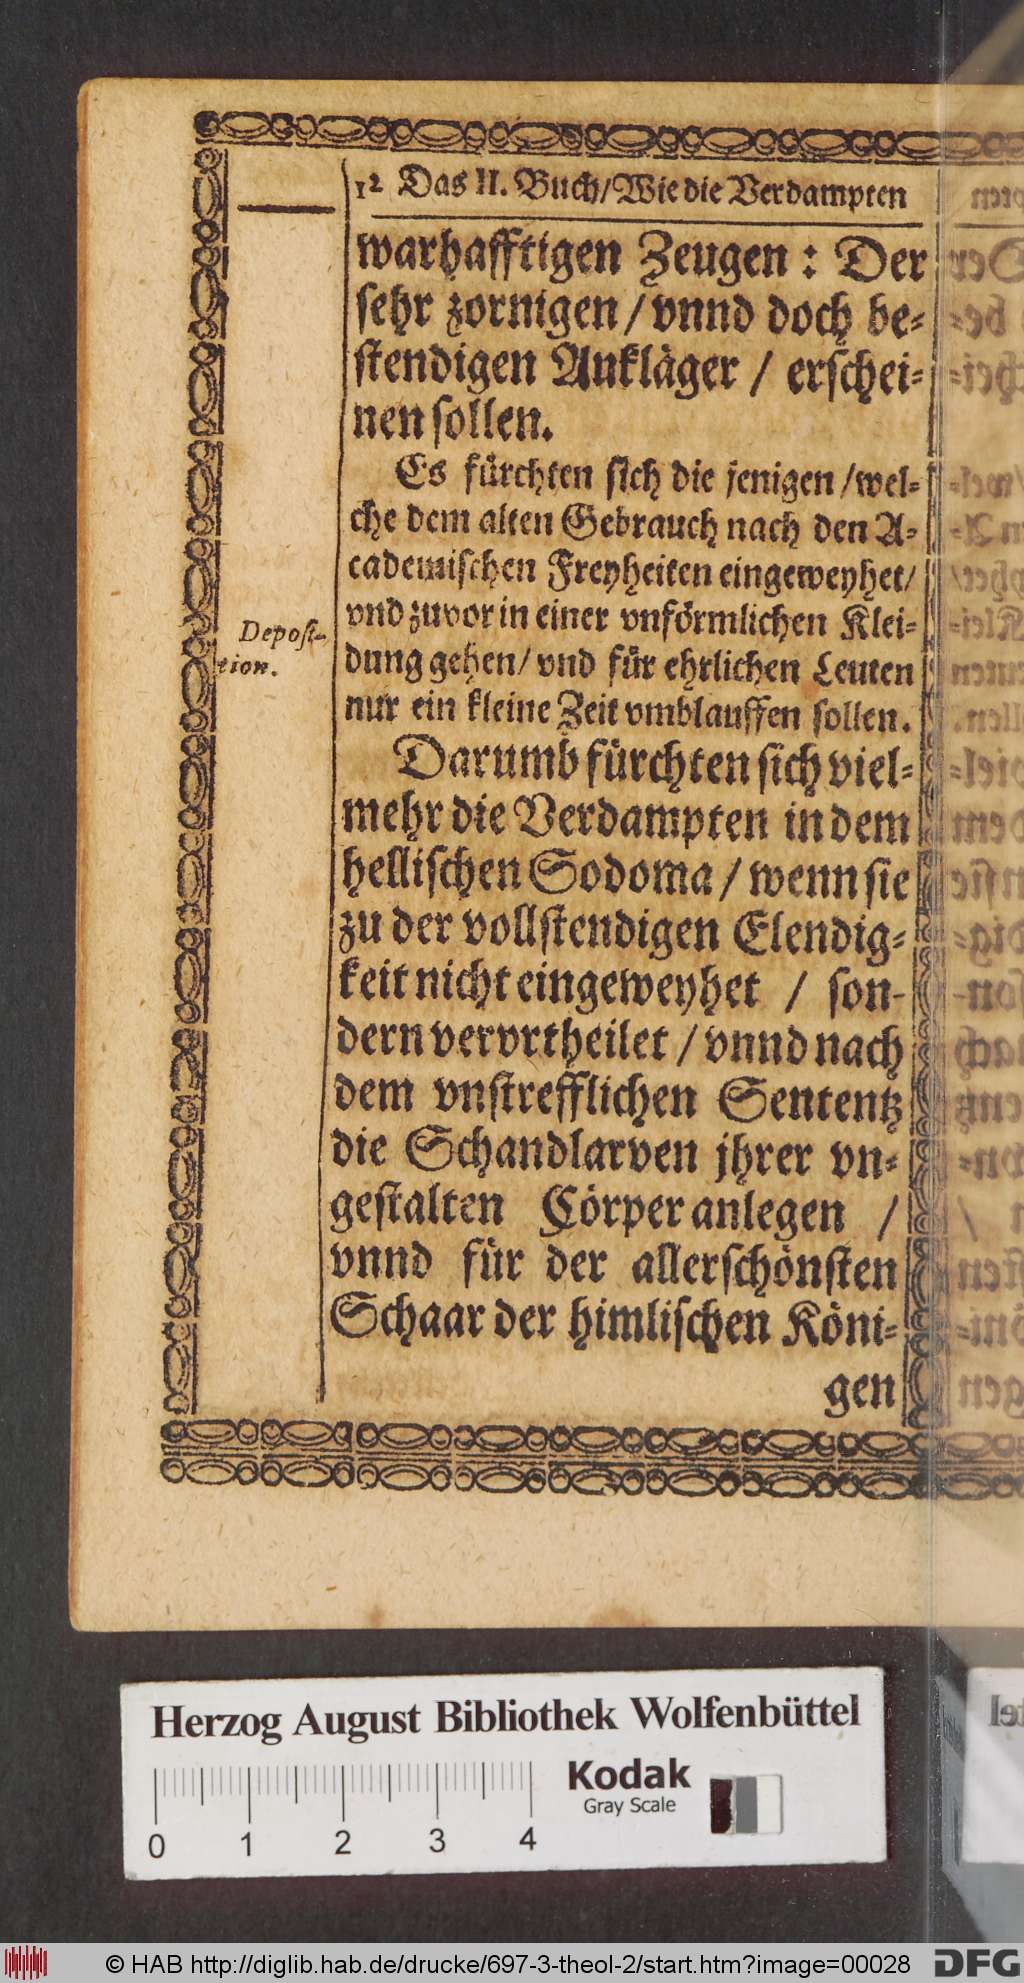 12 Das II. Buch/Wie die Verdampten
warhafftigen Zeugen : Der
sehr zornigen / vnnd doch be-
stendigen Aukläger / erschei-
nen sollen.
Es fürchten sich die jenigen /wel-
che dem alten Gebrauch nach den A-
cademischen Freyheiten eingeweyhet/
vnd zuvor in einer vnförmlichen Klei-
Deposi-
tion.
dung gehen/ vnd für ehrlichen Leuten
nur ein kleine Zeit vmblauffen sollen.
Darumb fürchten sich viel-
mehr die Verdampten in dem
hellischen Sodoma / wenn sie
zu der vollstendigen Elendig-
keit nicht eingeweyhet / son-
dern vervrtheilet / vnnd nach
dem vnstrefflichen Sententz
die Schandlarven jhrer vn-
gestalten Cörper anlegen /
vnnd für der allerschönsten
Schaar der himlischen Köni-
gen
Herzog August Bibliothek Wolfenbüttel
Kodak
Gray Scale
0 1 2 3 4
© HAB http://diglib.hab.de/drucke/697-3-theol-2/start.htm?image=00028
DFG